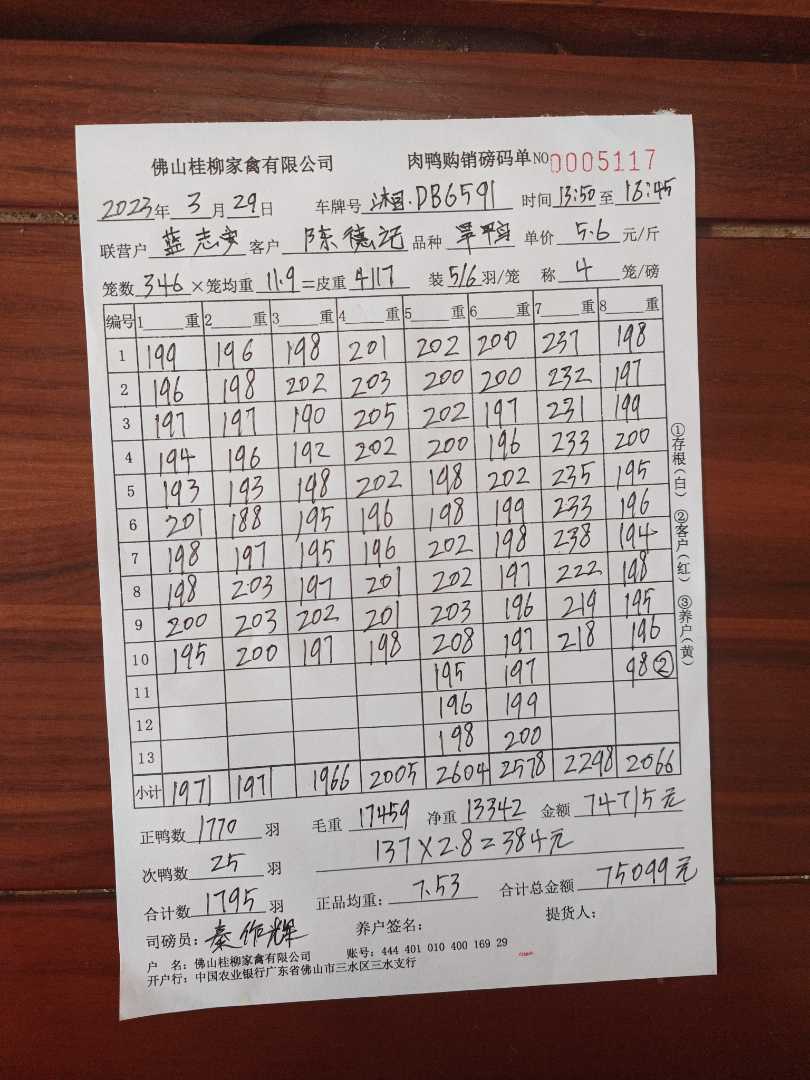 佛山桂柳家禽有限公司 肉鸭购销磅码单 NO 0005117
2023年 3 月 29 日 车牌号 DB6591 时间 13:50 至 16:45
联营户 蓝志安 客户 陈德记 品种 单价 5.6 元/斤
笼数 346 ×笼均重 11.9 =皮重 4117 装 5/6 羽/笼 称 4 笼/磅
编号 1 重 2 重 3 重 4 重 5 重 6 重 7 重 8 重
1 199 196 198 201 202 200 237 198
2 196 198 202 203 200 200 232 197
3 197 197 190 205 202 197 231 199
4 194 196 192 202 200 196 233 200
5 193 193 198 202 198 202 235 195
6 201 188 195 196 198 199 233 196
7 198 197 195 196 202 198 238 194
8 198 203 197 201 202 197 222 198
9 200 203 202 201 203 196 219 195
10 195 200 197 198 208 197 218 196
11 195 197 98 ②
12 196 199
13 198 200
小计 1971 1971 1966 2005 2604 2578 2298 2066
正鸭数 1770 羽 毛重 17459 净重 13342 金额 74715元
次鸭数 25 羽 137×2.8=384元
合计数 1795 羽 正品均重: 7.53 合计总金额 75099元
司磅员: 秦作辉 养户签名: 提货人:
户 名: 佛山桂柳家禽有限公司 账号: 444 401 010 400 169 29
开户行: 中国农业银行广东省佛山市三水区三水支行
①存根(白) ②客户(红) ③养户(黄)